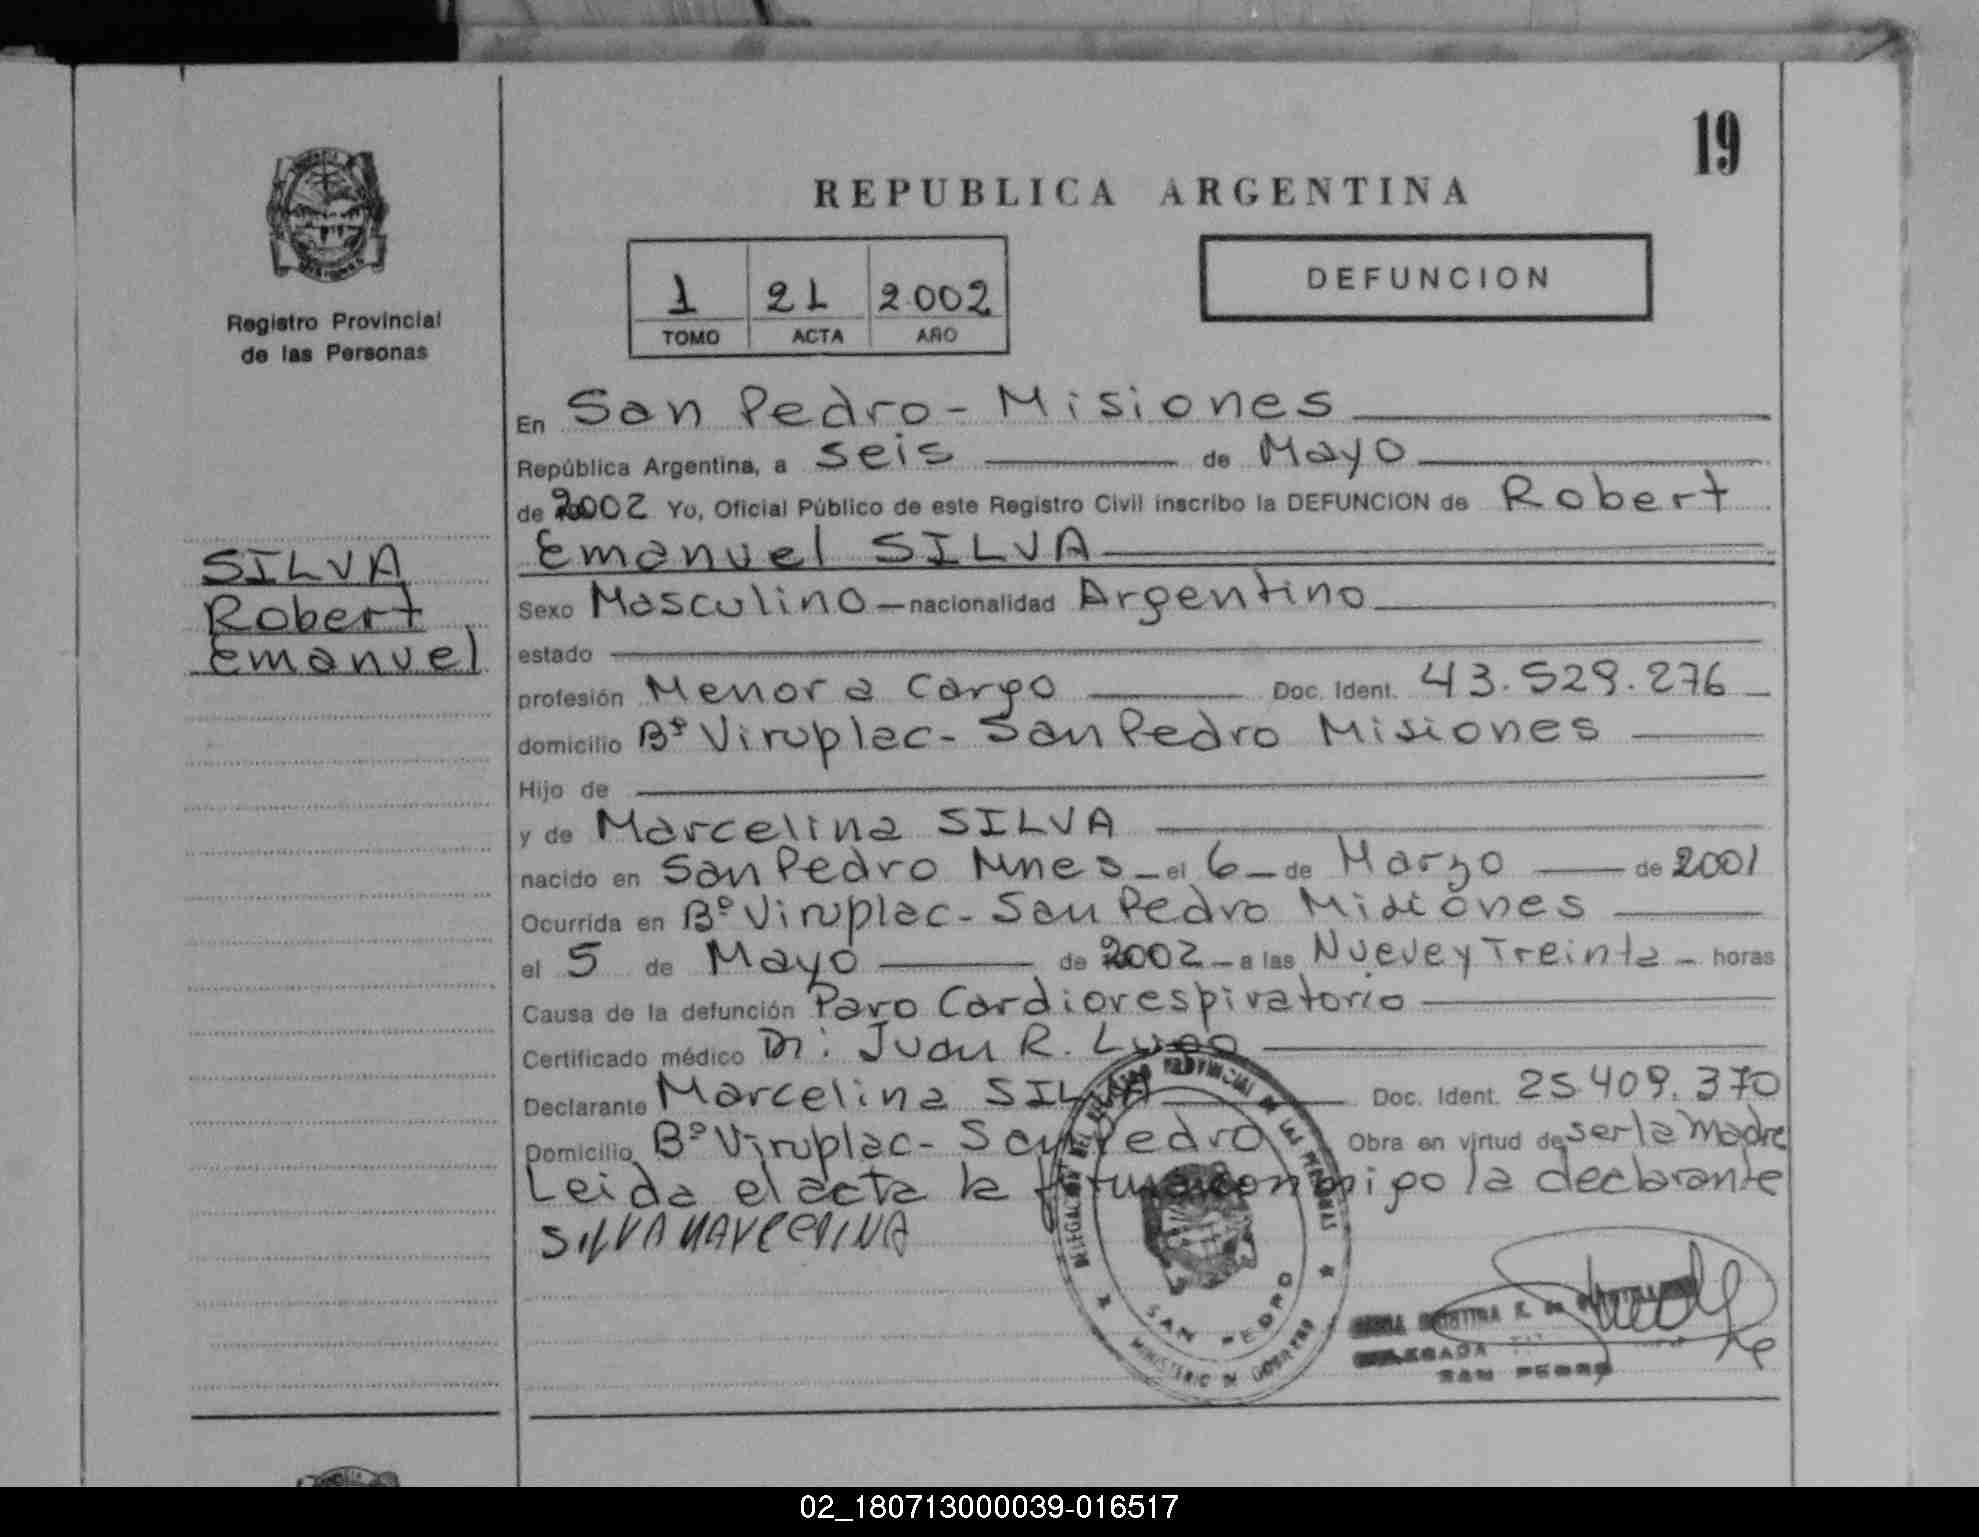 19
REPUBLICA ARGENTINA
Registro Provincial
de las Personas
1 21 2002
TOMO ACTA AÑO
DEFUNCION
SILVA
Robert
Emanuel
En San Pedro - Misiones
República Argentina, a seis de Mayo
de 2002 Yo, Oficial Público de este Registro Civil inscribo la DEFUNCION de Robert
Emanuel SILVA
Sexo Masculino - nacionalidad Argentino
estado
profesión Menor a cargo Doc. Ident. 43.529.276
domicilio Bº Viruplac - San Pedro Misiones
Hijo de
y de Marcelina SILVA
nacido en San Pedro Mnes - el 6 - de Marzo de 2001
Ocurrida en Bº Viruplac - San Pedro Misiones
el 5 de Mayo de 2002 - a las Nueve y Treinta - horas
Causa de la defunción Paro Cardiorespiratorio
Certificado médico Dr: Juan R. Lugo
Declarante Marcelina SILVA Doc. Ident. 25409.370
Domicilio Bº Viruplac - San Pedro Obra en virtud de ser la Madre
Leida el acta la firma conmigo la declarante
SILVA MARCELINA
DELEGACION DEL REGISTRO PROVINCIAL DE LAS PERSONAS
SAN PEDRO
MINISTERIO DE GOBIERNO
SAN PEDRO
02_180713000039-016517